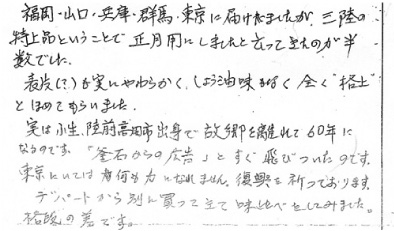 福岡・山口・兵庫・群馬・東京に届けましたが、三陸の
特上品ということで正月用にしましたと云って来たのが半
数でした。
表皮(?)が実にやわらかく、しょう油味もよく全く"極上"
とほめてもらいました。
実は小生、陸前高田市出身で故郷を離れて60年に
なるのです。「釜石からの広告」とすぐ飛びついたのです。
東京にいては何も力になれません。復興を祈っております。
デパートから別に買って来て味比べをしてみました。
格段の差です。